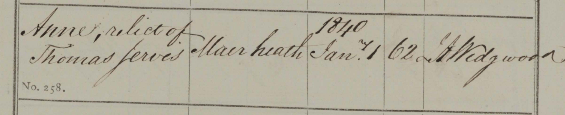 Anne, relict of 1840
Thomas Jervis Maer heath Jan.y 1 62 H Wedgwood
No. 258.